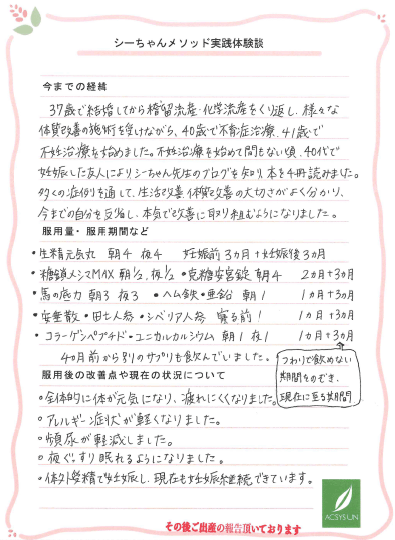 シーちゃんメソッド実践体験談
今までの経緯
37歳で結婚してから稽留流産・化学流産をくり返し、様々な
体質改善の施術を受けながら、40歳で不育症治療、41歳で
不妊治療を始めました。不妊治療を始めて間もない頃、40代で
妊娠した友人によりシーちゃん先生のブログを知り、本を4冊読みました。
多くの症例を通して、生活改善、体質改善の大切さがよく分かり、
今までの自分を反省し、本気で改善に取り組むようになりました。
服用量・服用期間など
・性精元気丸 朝4 夜4 妊娠前3ヵ月+妊娠後3ヵ月
・糖鎖メシマMAX 朝1/2、夜1/2 ・克糖安宮錠 朝4 2ヵ月+3ヵ月
・馬の底力 朝3 夜3 ・ヘム鉄・亜鉛 朝1 1ヵ月+3ヵ月
・安亜散・田七人参・シベリア人参 寝る前1 1ヵ月+3ヵ月
・コラーゲンペプチド・ユニカルカルシウム 朝1 夜1 1ヵ月+3ヵ月
4ヵ月前から別のサプリも飲んでいました。
つわりで飲めない
期間をのぞき、
現在に至る期間
服用後の改善点や現在の状況について
○全体的に体が元気になり、疲れにくくなりました。
○アレルギー症状が軽くなりました。
○頻尿が軽減しました。
○夜ぐっすり眠れるようになりました。
○体外受精で妊娠し、現在も妊娠継続できています。
ACSYSUN
その後ご出産の報告頂いております